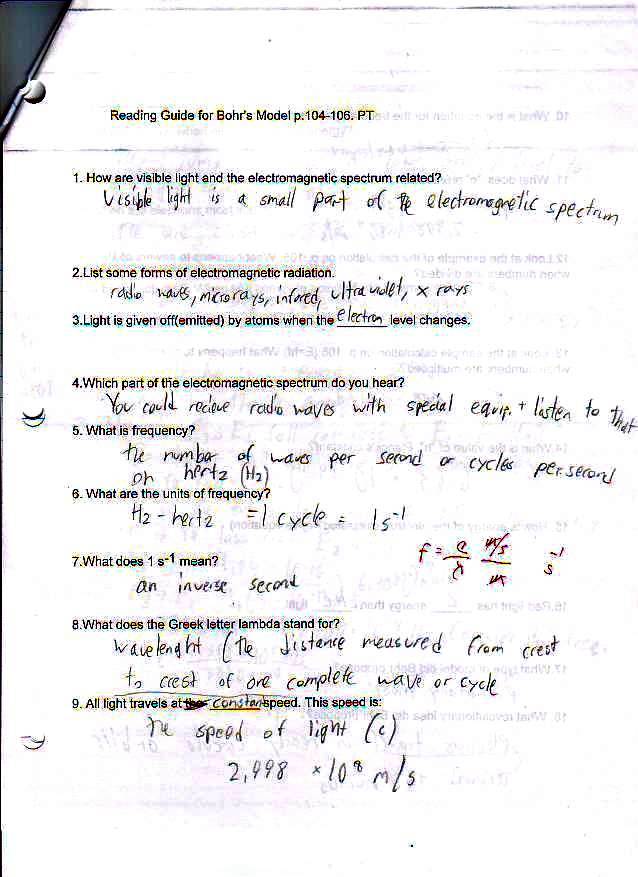 Reading Guide for Bohr's Model p.104-106. PT
1. How are visible light and the electromagnetic spectrum related?
Visible light is a small part of the electromagnetic spectrum
2.List some forms of electromagnetic radiation.
radio waves, microrays, infored, ultraviolet, x rays
3.Light is given off(emitted) by atoms when the electron level changes.
4.Which part of the electromagnetic spectrum do you hear?
You could recieve radio waves with special equip. + listen to that
5. What is frequency?
the number of waves per second or cycles per second
or hertz (Hz)
6. What are the units of frequency?
Hz - hertz = 1 cycle = 1 s-1
f = c/λ m/s / m s-1
7.What does 1 s-1 mean?
an inverse second
8.What does the Greek letter lambda stand for?
wavelenght (the distance measured from crest
to crest of one complete wave or cycle
9. All light travels at constant speed. This speed is:
The speed of light (c)
2.998 × 10⁸ m/s